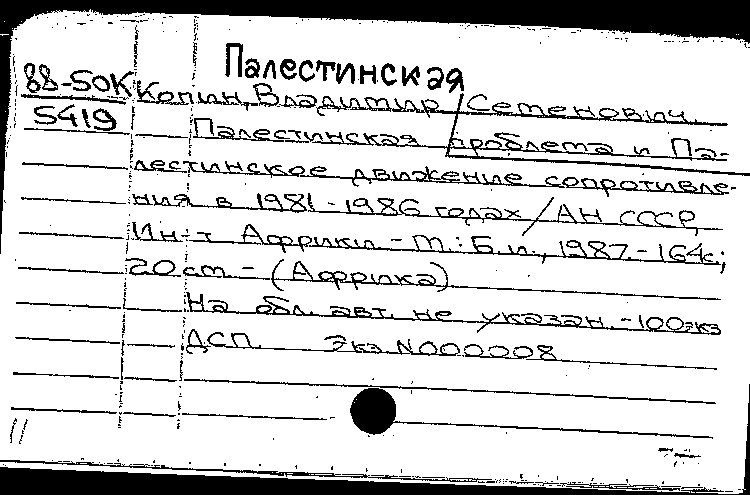 Палестинская
88-50К
5419
Копин, Владимир Семенович.
Палестинская проблема и Па-
лестинское движение сопротивле-
ния в 1981-1986 годах/АН СССР,
Ин-т Африки - М.: Б.и., 1987. - 164с.;
20 см. - (Африка)
На обл. авт. не указан. - 100экз
ДСП. Экз. N000008
11